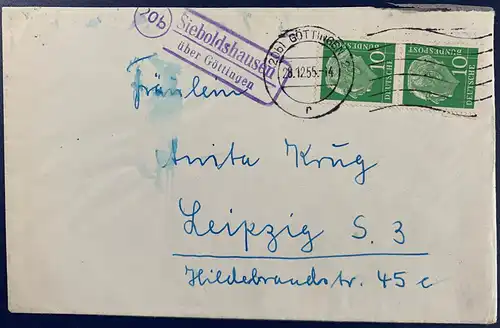 20b
Sieboldshausen
über Göttingen
(20b) GÖTTINGEN
28.12.55.-14
r
10
DEUTSCHE
BUNDESPOST
10
DEUTSCHE
BUNDESPOST
Fräulein
Anita Krug
Leipzig S. 3
Hildebrandstr. 45 c